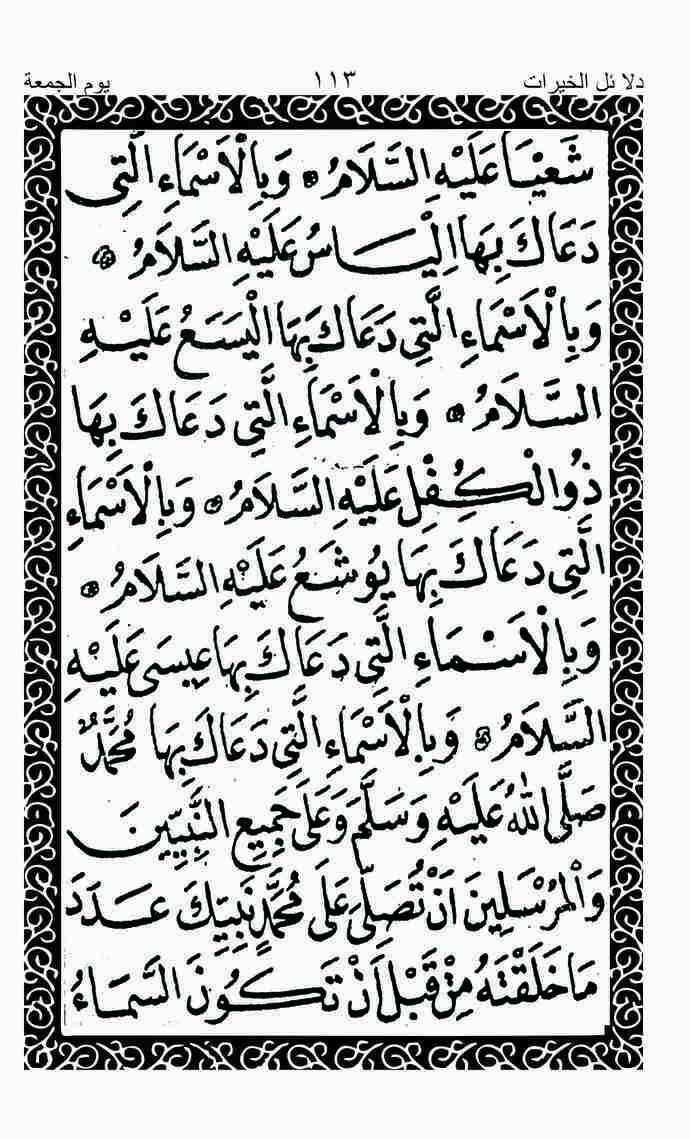 دلائل الخيرات ١١٣ يوم الجمعة
شَعْيَا عَلَيْهِ السَّلَامُ ۞ وَبِالْأَسْمَاءِ الَّتِى
دَعَاكَ بِهَا اِلْيَاسُ عَلَيْهِ السَّلَامُ ۞
وَبِالْأَسْمَاءِ الَّتِى دَعَاكَ بِهَا الْيَسَعُ عَلَيْهِ
السَّلَامُ ۞ وَبِالْأَسْمَاءِ الَّتِى دَعَاكَ بِهَا
ذُوالْكِفْلِ عَلَيْهِ السَّلَامُ ۞ وَبِالْأَسْمَاءِ
الَّتِى دَعَاكَ بِهَا يُوشَعُ عَلَيْهِ السَّلَامُ ۞
وَبِالْأَسْمَاءِ الَّتِى دَعَاكَ بِهَا عِيسَى عَلَيْهِ
السَّلَامُ ۞ وَبِالْأَسْمَاءِ الَّتِى دَعَاكَ بِهَا مُحَمَّدٌ
صَلَّى اللهُ عَلَيْهِ وَسَلَّمَ وَعَلَى جَمِيعِ النَّبِيِّينَ
وَالْمُرْسَلِينَ اَنْ تُصَلِّىَ عَلَى مُحَمَّدٍ نَبِيِّكَ عَدَدَ
مَا خَلَقْتَهُ مِنْ قَبْلِ اَنْ تَكُونَ السَّمَاءُ